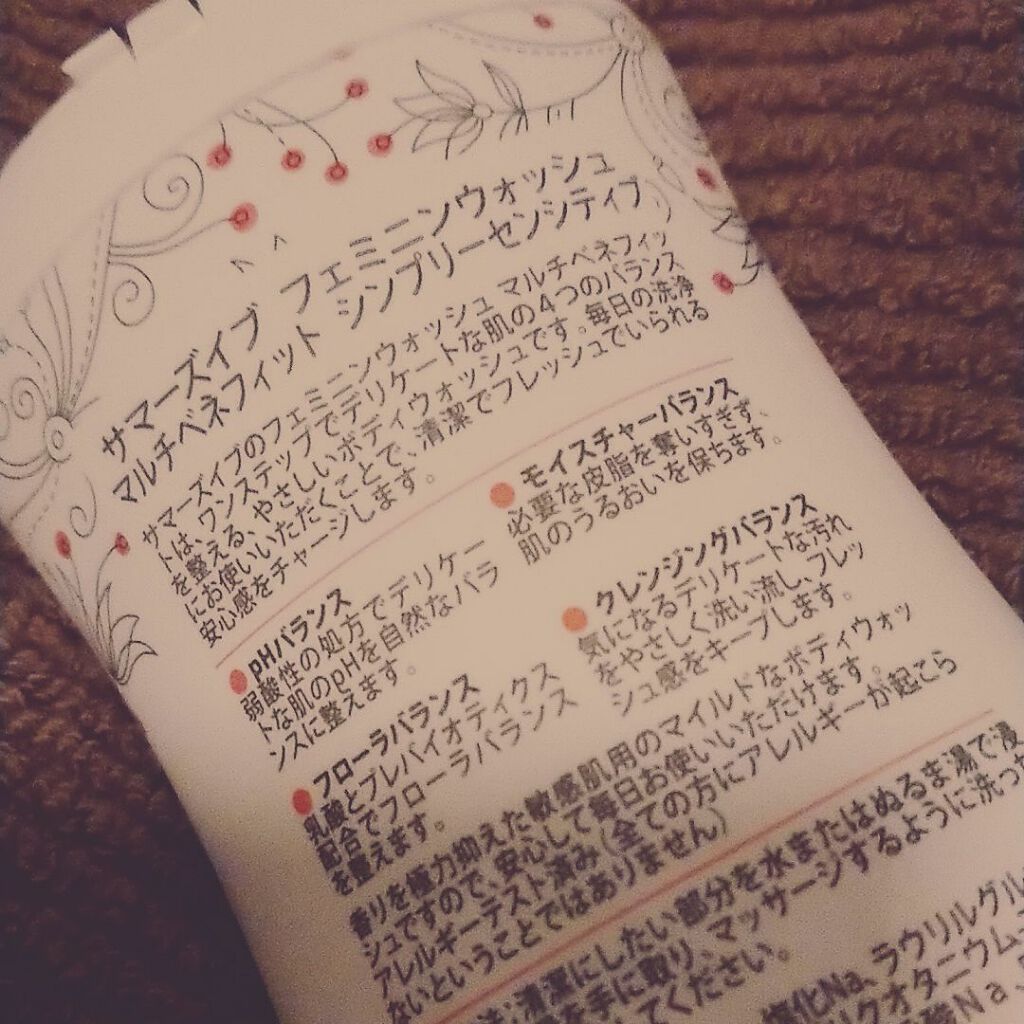 サマーズイブ フェミニンウォッシュ
マルチベネフィット シンプリーセンシティブ
サマーズイブのフェミニンウォッシュ マルチベネフィッ
トは、ワンステップでデリケートな肌の4つのバランス
を整える、やさしいボディウォッシュです。毎日の洗浄
にお使いいただくことで、清潔でフレッシュでいられる
安心感をチャージします。
pHバランス
弱酸性の処方でデリケー
トな肌のpHを自然なバラ
ンスに整えます。
モイスチャーバランス
必要な皮脂を奪いすぎず、
肌のうるおいを保ちます。
フローラバランス
乳酸とプレバイオティクス
配合でフローラバランス
を整えます。
クレンジングバランス
気になるデリケートな汚れ
をやさしく洗い流し、フレッ
シュ感をキープします。
香りを極力抑えた敏感肌用のマイルドなボディウォッ
シュですので、安心して毎日お使いいただけます。
アレルギーテスト済み(全ての方にアレルギーが起こら
ないということではありません)
清潔にしたい部分を水またはぬるま湯で浸
を手に取り、マッサージするように洗っ
てください。
塩化Na、ラウリルグル
クオタニウム
酸Na、